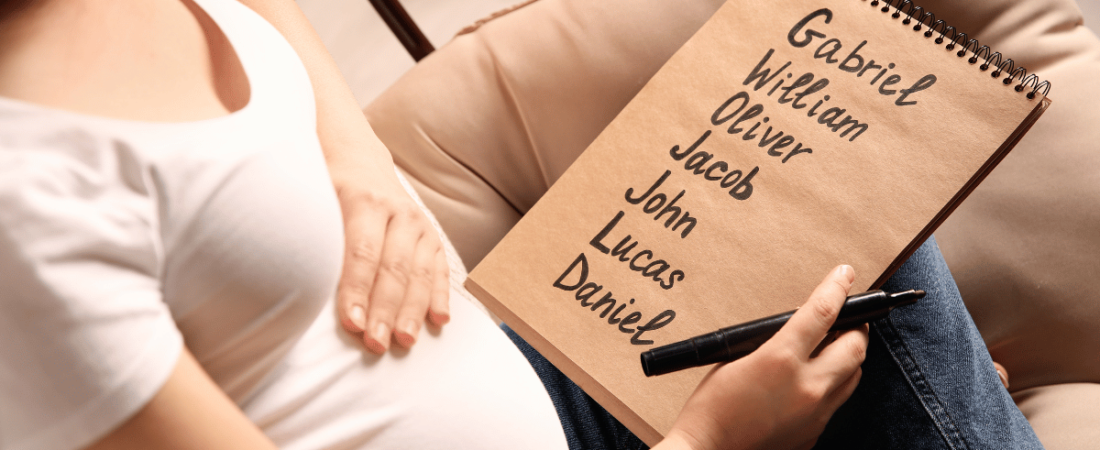 Gabriel
William
Oliver
Jacob
John
Lucas
Daniel